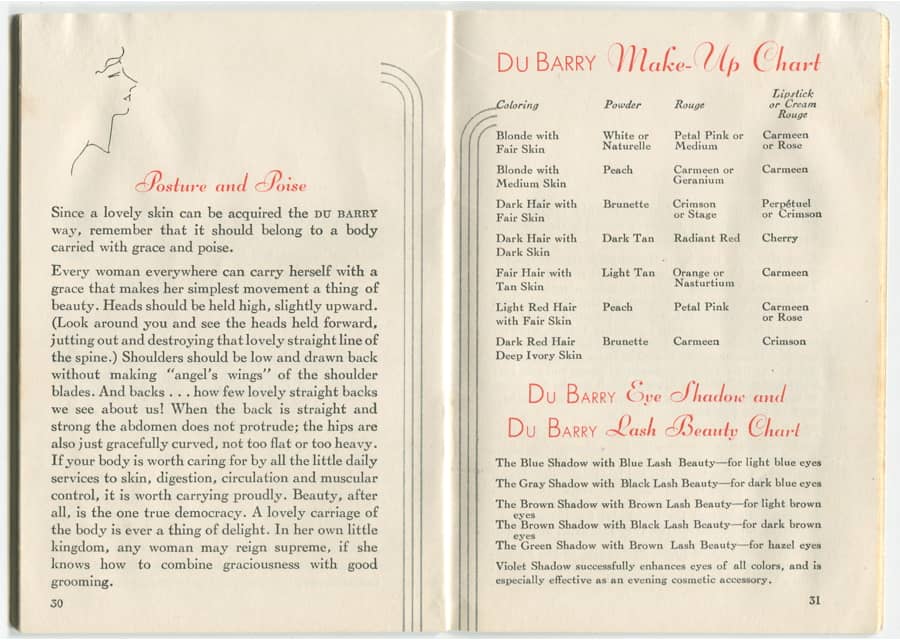 Posture and Poise
Since a lovely skin can be acquired the DU BARRY
way, remember that it should belong to a body
carried with grace and poise.
Every woman everywhere can carry herself with a
grace that makes her simplest movement a thing of
beauty. Heads should be held high, slightly upward.
(Look around you and see the heads held forward,
jutting out and destroying that lovely straight line of
the spine.) Shoulders should be low and drawn back
without making "angel's wings" of the shoulder
blades. And backs . . . how few lovely straight backs
we see about us! When the back is straight and
strong the abdomen does not protrude; the hips are
also just gracefully curved, not too flat or too heavy.
If your body is worth caring for by all the little daily
services to skin, digestion, circulation and muscular
control, it is worth carrying proudly. Beauty, after
all, is the one true democracy. A lovely carriage of
the body is ever a thing of delight. In her own little
kingdom, any woman may reign supreme, if she
knows how to combine graciousness with good
grooming.
30
DU BARRY Make-Up Chart
Coloring Powder Rouge Lipstick
or Cream
Rouge
Blonde with White or Petal Pink or Carmeen
Fair Skin Naturelle Medium or Rose
Blonde with Peach Carmeen or Carmeen
Medium Skin Geranium
Dark Hair with Brunette Crimson Perpétuel
Fair Skin or Stage or Crimson
Dark Hair with Dark Tan Radiant Red Cherry
Dark Skin
Fair Hair with Light Tan Orange or Carmeen
Tan Skin Nasturtium
Light Red Hair Peach Petal Pink Carmeen
with Fair Skin or Rose
Dark Red Hair Brunette Carmeen Crimson
Deep Ivory Skin
DU BARRY Eye Shadow and
DU BARRY Lash Beauty Chart
The Blue Shadow with Blue Lash Beauty—for light blue eyes
The Gray Shadow with Black Lash Beauty—for dark blue eyes
The Brown Shadow with Brown Lash Beauty—for light brown
eyes
The Brown Shadow with Black Lash Beauty—for dark brown
eyes
The Green Shadow with Brown Lash Beauty—for hazel eyes
Violet Shadow successfully enhances eyes of all colors, and is
especially effective as an evening cosmetic accessory.
31